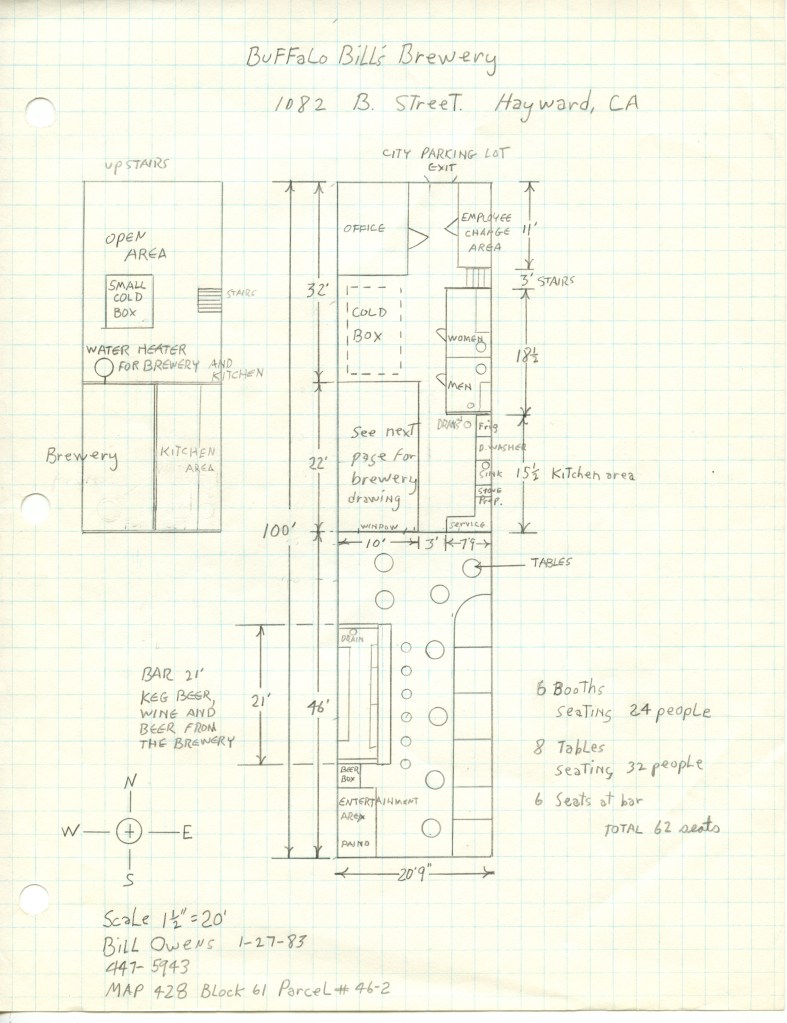 Buffalo Bill's Brewery
1082 B. Street. Hayward, CA
UPSTAIRS
OPEN
AREA
SMALL
COLD
BOX
STAIRS
WATER HEATER
FOR BREWERY AND
KITCHEN
Brewery
KITCHEN
AREA
CITY PARKING LOT
EXIT
OFFICE
EMPLOYEE
CHANGE
AREA
11'
3' STAIRS
32'
COLD
BOX
WOMEN
MEN
18½
DRAINS
Frig
D.WASHER
SINK
STOVE
Prep.
SERVICE
15½ Kitchen area
22'
See next
page for
brewery
drawing
WINDOW
100'
10' 3' 7'9
TABLES
DRAIN
BAR 21'
KEG BEER,
WINE AND
BEER FROM
THE BREWERY
21'
46'
BEER
BOX
ENTERTAINMENT
AREA
PAINO
20'9"
6 Booths
seating 24 people
8 Tables
seating 32 people
6 Seats at bar
TOTAL 62 seats
N
W E
S
Scale 1½"=20'
Bill Owens 1-27-83
447-5943
MAP 428 Block 61 Parcel# 46-2